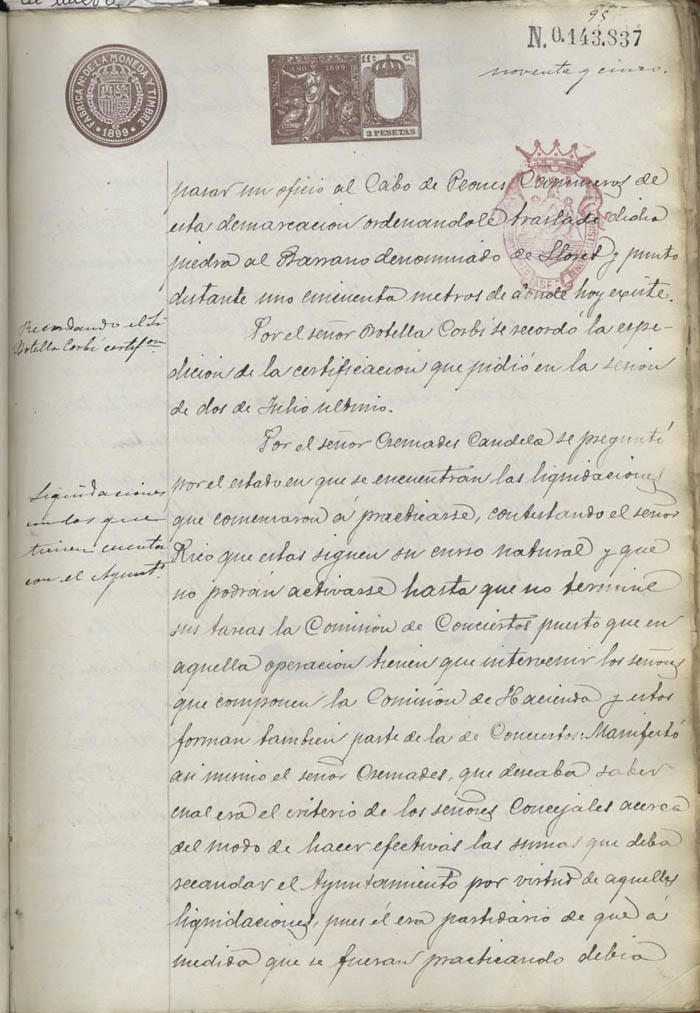 95
N. 0.143.837
noventa y cinco.
FABRICA Nl. DE LA MONEDA Y TIMBRE
1899
AÑO 1899
11ª C.
2 PESETAS
pasar un oficio al Cabo de Peones Camineros de
esta demarcacion ordenandole traslade dicha
piedra al Barranco denominado de Lloret y punto
distante uno cincuenta metros de donde hoy existe.
Recordando el Sr.
Botella Corbí certifon
Por el señor Botella Corbí se recordó la espe-
dición de la certificacion que pidió en la sesion
de dos de Julio ultimo.
Por el señor Cremades Candela se preguntó
Liquidaciones
en las que
tienen cuenta
con el Ayuntº.
por el estado en que se encuentran las liquidaciones
que comenzaron á practicarse, contestando el señor
Rico que estas siguen su curso natural y que
no podrán activarse hasta que no termine
sus tareas la Comisión de Conciertos puesto que en
aquella operacion tienen que intervenir los señores
que componen la Comisión de Hacienda y estos
forman tambien parte de la de Conciertos: Manifestó
asi mismo el señor Cremades, que deseaba saber
cual era el criterio de los señores Concejales acerca
del modo de hacer efectivas las sumas que deba
recaudar el Ayuntamiento por virtud de aquellas
liquidaciones, pues él era partidario de que á
medida que se fueran practicando debia